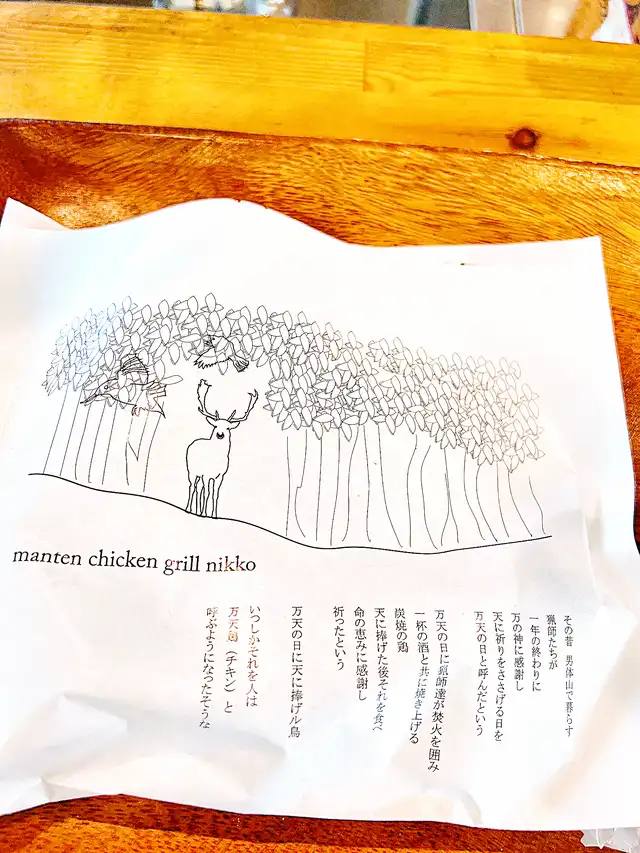 manten chicken grill nikko
その昔 男体山で暮らす
猟師たちが
一年の終わりに
万の神に感謝し
天に祈りをささげる日を
万天の日と呼んだという
万天の日に猟師達が焚火を囲み
一杯の酒と共に焼き上げる
炭焼の鶏
天に捧げた後それを食べ
命の恵みに感謝し
祈ったという
万天の日に天に捧げル鳥
いつしかそれを人は
万天鶏（チキン）と
呼ぶようになったそうな